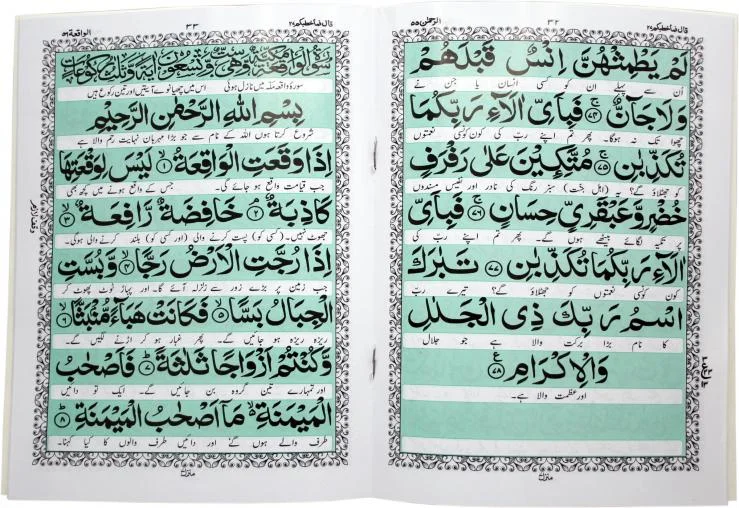 قال فما خطبکم ۲۷
۳۲
الرحمٰن ۵۵
لَمْ يَطْمِثْهُنَّ اِنْسٌ قَبْلَهُمْ
اُن سے پہلے ان کو کسی انسان یا جن نے
وَلَا جَآنٌّ ۚ﴿۷۴﴾ فَبِاَىِّ الَاۤءِ رَبِّكُمَا
چھوا تک نہ ہوگا۔ پھر تم اپنے ربّ کی کون کونسی نعمتوں
تُكَذِّبٰنِ ۚ﴿۷۵﴾ مُتَّكِـِٕيْنَ عَلٰى رَفْرَفٍ
کو جھٹلاؤ گے؟ یہ (اہل جنت) سبز رنگ کی نادر اور نفیس مسندوں
خُضْرٍ وَّعَبْقَرِىٍّ حِسَانٍ ۚ﴿۷۶﴾ فَبِاَىِّ
پر تکیہ لگائے بیٹھے ہوں گے۔ پھر تم اپنے رب کی
الَاۤءِ رَبِّكُمَا تُكَذِّبٰنِ ﴿۷۷﴾ تَبٰرَكَ
کون کونسی نعمتوں کو جھٹلاؤ گے؟ تیرے ربّ
اسْمُ رَبِّكَ ذِى الْجَلٰلِ
کا نام بڑا برکت والا ہے جو جلال
وَالْاِكْرَامِ ﴿۷۸﴾
اور عظمت والا ہے۔
منزل
قال فما خطبکم ۲۷
۳۳
الواقعة ۵۶
سورة الواقعة مكية وهي ست وتسعون اية وثلث ركوعات
سورۂ واقعہ مکہ میں نازل ہوئی اس میں چھیانوے آیتیں اور تین رکوع ہیں
بِسْمِ اللهِ الرَّحْمٰنِ الرَّحِيْمِ
شروع کرتا ہوں اللہ کے نام سے جو بڑا مہربان نہایت رحم والا ہے
اِذَا وَقَعَتِ الْوَاقِعَةُ ۙ﴿۱﴾ لَيْسَ لِوَقْعَتِهَا
جب قیامت واقع ہو جائے گی۔ جس کے واقع ہونے میں کچھ بھی
كَاذِبَةٌ ۘ﴿۲﴾ خَافِضَةٌ رَّافِعَةٌ ۙ﴿۳﴾
جھوٹ نہیں۔ (کسی کو) پست کرنے والی (اور کسی کو) بلند کرنے والی ہوگی۔
اِذَا رُجَّتِ الْاَرْضُ رَجًّا ۙ﴿۴﴾ وَّبُسَّتِ
جب زمین پر بڑے زور سے زلزلہ آئے گا۔ اور پہاڑ ٹوٹ پھوٹ کر
الْجِبَالُ بَسًّا ۙ﴿۵﴾ فَكَانَتْ هَبَآءً مُّنْۢبَثًّا ۙ﴿۶﴾
ریزہ ریزہ ہو جائیں گے۔ پھر غبار ہو کر اڑنے لگیں گے۔
وَّكُنْتُمْ اَزْوَاجًا ثَلٰثَةً ؕ﴿۷﴾ فَاَصْحٰبُ
اور تمہارے تین گروہ بن جائیں گے۔ ایک تو دائیں
الْمَيْمَنَةِ ۙ مَاۤ اَصْحٰبُ الْمَيْمَنَةِ ؕ﴿۸﴾
طرف والے ہوں گے اور دائیں طرف والوں کا کیا کہنا۔
منزل